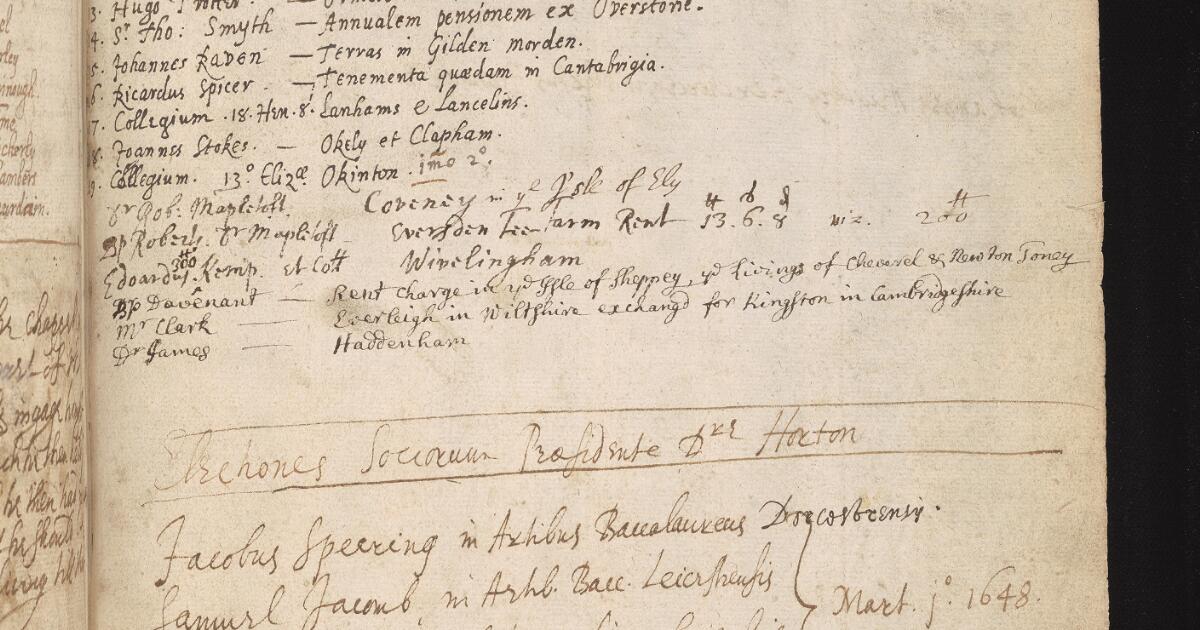 3. Hugo Trotter
4. Sr. Tho: Smyth — Annualem pensionem ex Overstone.
5. Johannes Raven — Terras in Gilden morden.
6. Ricardus Spicer. — Tenementa quædam in Cantabrigia.
7. Collegium. 18. Hen. 8. Lanhams & Lancelins.
8. Joannes Stokes. — Okely et Clapham.
9. Collegium. 13o. Elizæ Okinton. imo 2o.
Dr Rob: Mapletoft. Coveney in ye Isle of Ely
Bp Roberts. Dr Mapletoft Eversden Fee farm Rent 13. 6. 8 viz. 200
Edoardus Kemp. et Viz Wivelingham
300
Bp Davenant — Rent charge in ye Isle of Sheppey, ye Livings of Cheverel & Newton Toney
Mr Clark — Everleigh in Wiltshire exchangd for Kingston in Cambridgeshire
Dr James — Haddenham
Electiones Sociorum Præsidente Dre Horton
Jacobus Speering in Artibus Baccalaureus Dorcestrensis.
Samuel Jacomb in Artib. Bacc. Leicestrensis
Mart. jo. 1648.